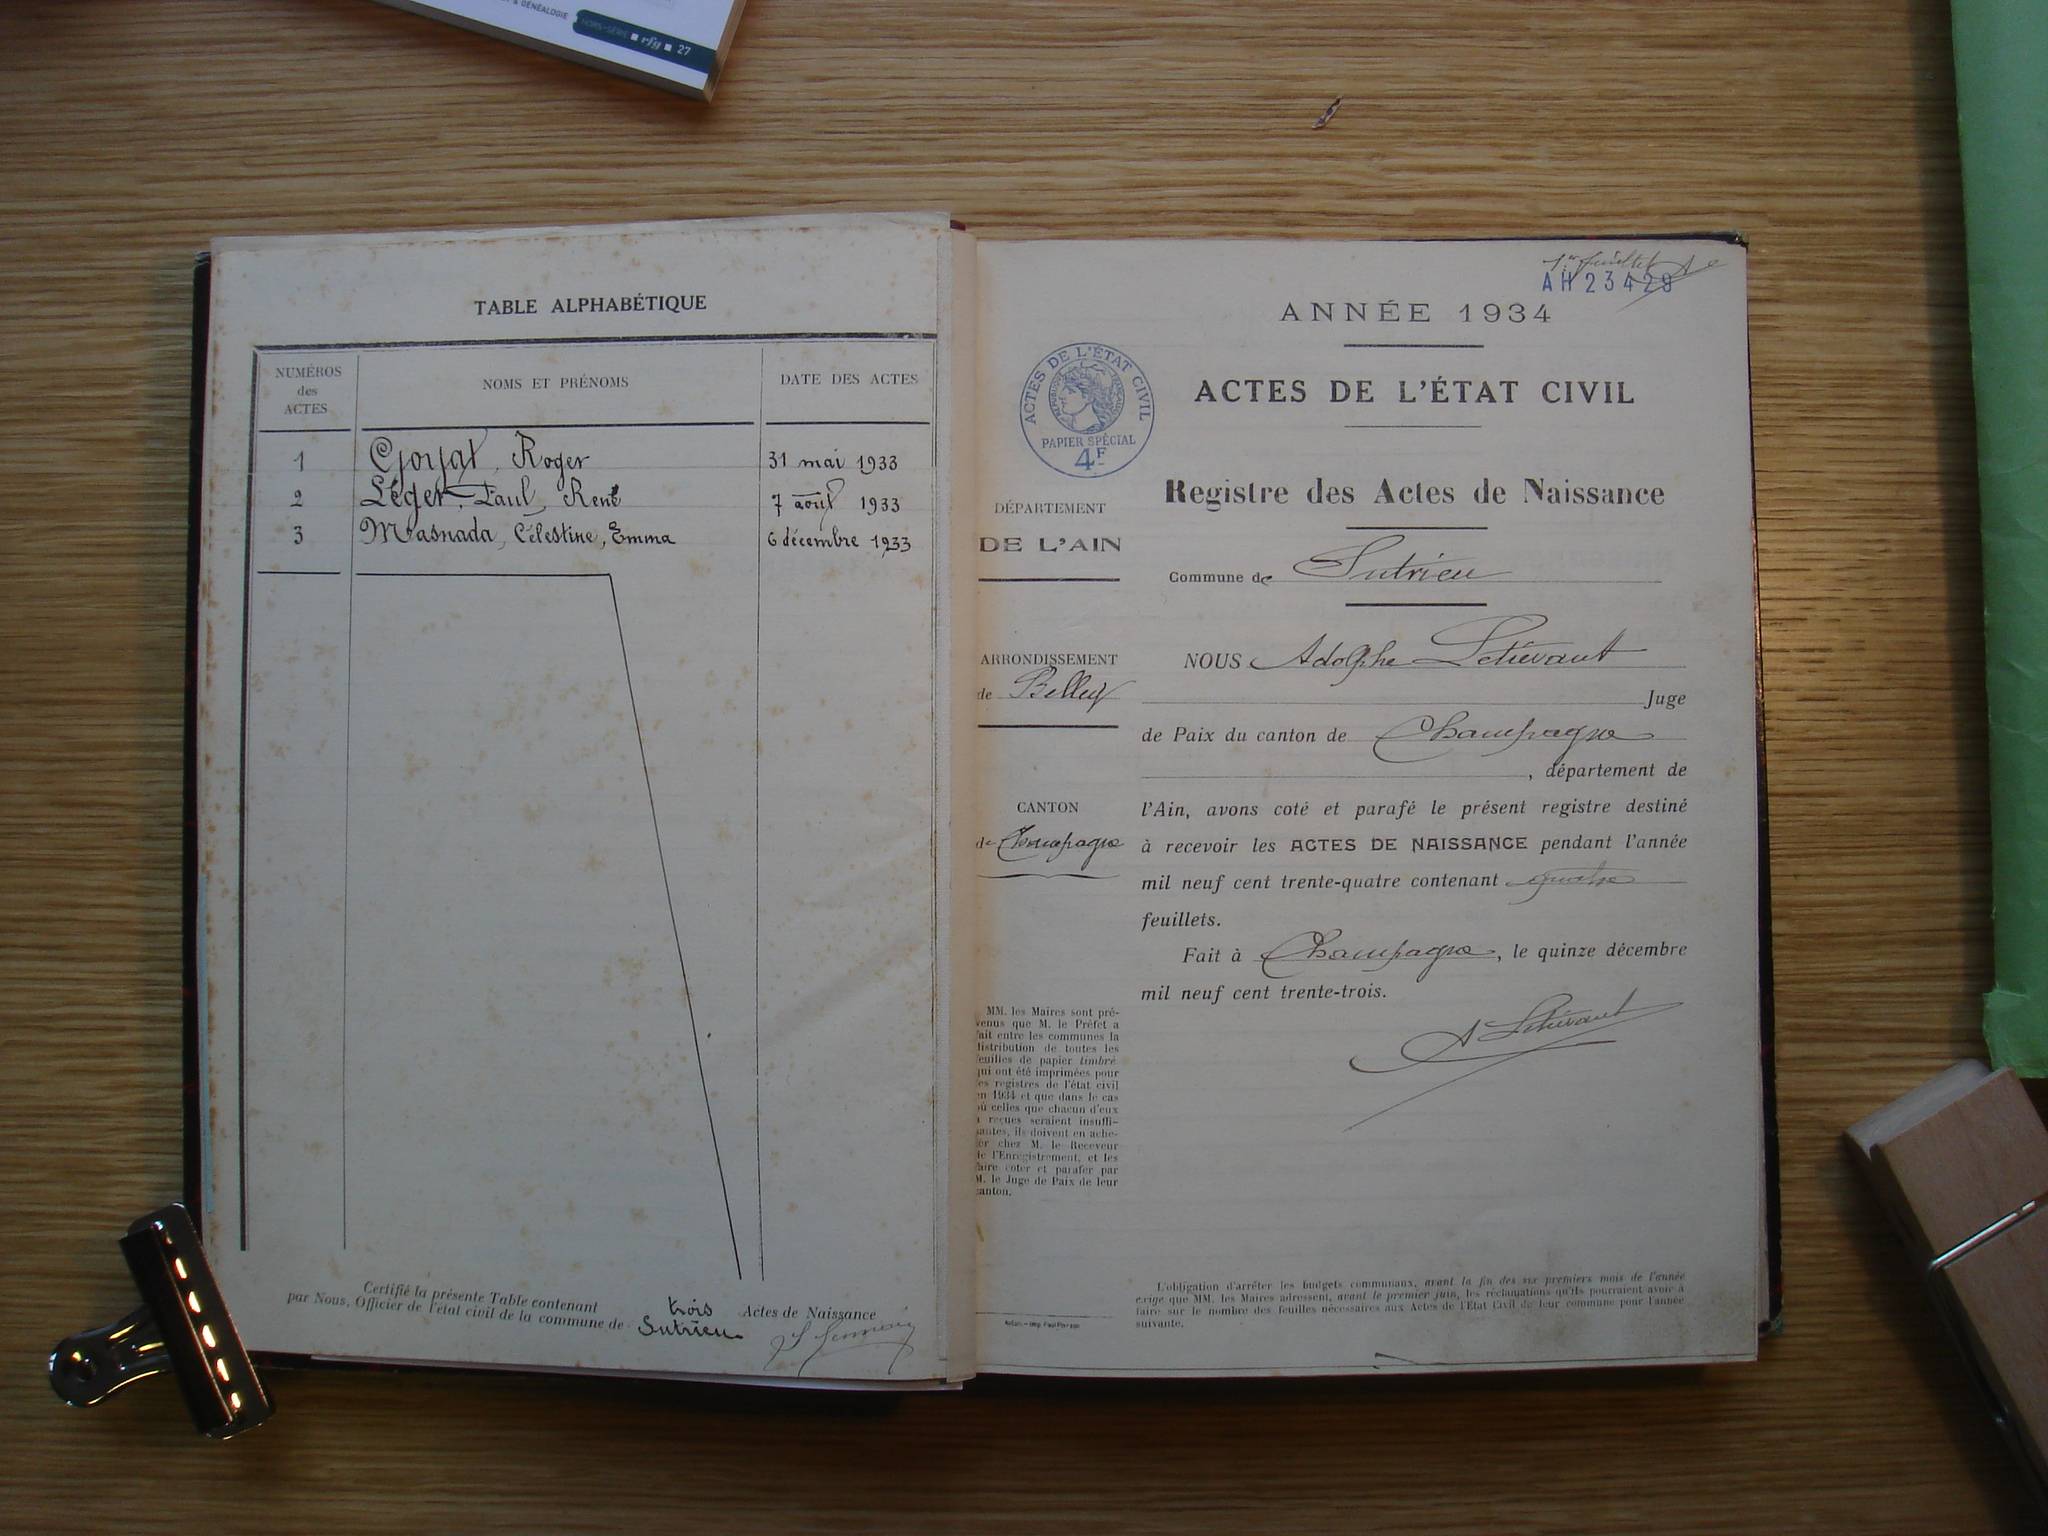 & GÉNÉALOGIE
HORS-SÉRIE ■ rfg ■ 27
TABLE ALPHABÉTIQUE
NUMÉROS des ACTES NOMS ET PRÉNOMS DATE DES ACTES
1 Goyat, Roger 31 mai 1933
2 Léger, Paul, René 7 août 1933
3 Masnada, Célestine, Emma 6 décembre 1933
Certifié la présente Table contenant trois Actes de Naissance
par Nous, Officier de l'état civil de la commune de Sutrieu
1er feuillet
AH 23429
ANNÉE 1934
ACTES DE L'ÉTAT CIVIL
ACTES DE L'ÉTAT CIVIL
RÉPUBLIQUE FRANÇAISE
PAPIER SPÉCIAL
4F
Registre des Actes de Naissance
DÉPARTEMENT
DE L'AIN
Commune de Sutrieu
ARRONDISSEMENT
de Belley
CANTON
de Champagne
NOUS Adolphe Létiévant
Juge
de Paix du canton de Champagne
, département de
l'Ain, avons coté et parafé le présent registre destiné
à recevoir les ACTES DE NAISSANCE pendant l'année
mil neuf cent trente-quatre contenant quatre
feuillets.
Fait à Champagne, le quinze décembre
mil neuf cent trente-trois.
A Létiévant
MM. les Maires sont pré-
venus que M. le Préfet a
fait entre les communes la
distribution de toutes les
feuilles de papier timbré
qui ont été imprimées pour
les registres de l'état civil
en 1934 et que dans le cas
où celles que chacun d'eux
a reçues seraient insuffi-
santes, ils doivent en ache-
ter chez M. le Receveur
de l'Enregistrement, et les
faire coter et parafer par
M. le Juge de Paix de leur
canton.
L'obligation d'arrêter les budgets communaux, avant la fin des six premiers mois de l'année
exige que MM. les Maires adressent, avant le premier juin, les réclamations qu'ils pourraient avoir à
faire sur le nombre des feuilles nécessaires aux Actes de l'État Civil de leur commune pour l'année
suivante.